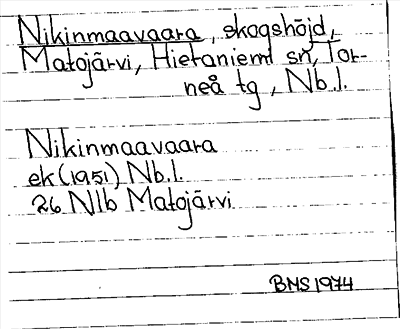 Nikinmaavaara, skogshöjd,
Matojärvi, Hietaniemi sn, Tor-
neå tg, Nb.l.
Nikinmaavaara
ek (1951) Nb.l.
26 Nlb Matojärvi
BNS 1974